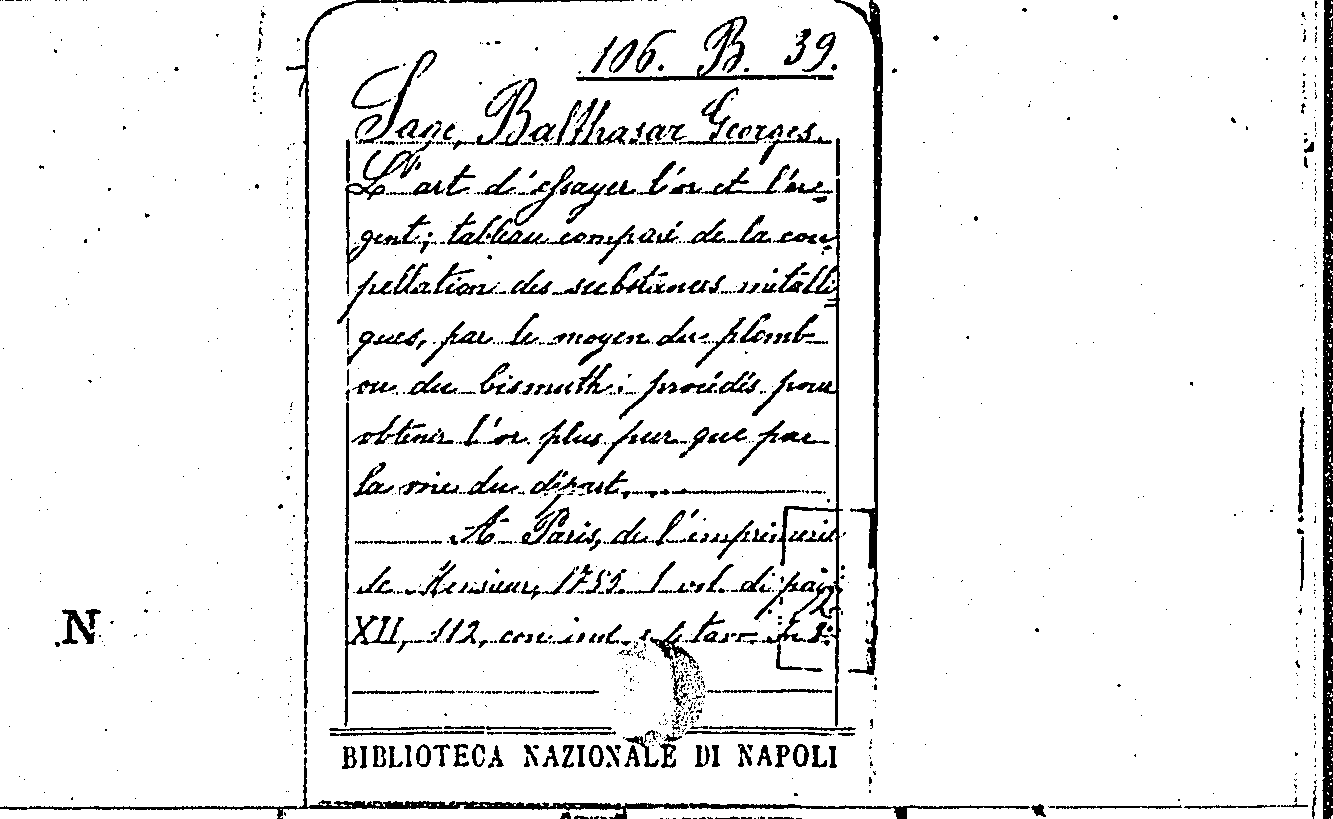 106. B. 39.
Sage, Balthasar Georges.
L'art d'essayer l'or et l'ar-
gent; tableau comparé de la cou-
pellation des substances métalli-
ques, par le moyen du plomb
ou du bismuth: procédés pour
obtenir l'or plus pur que par
la voie du départ. . .
A Paris, de l'imprimerie
de Monsieur, 1755. 1 vol. di pag.
XII, 112, con ind. e 1 tav. In 8º
N
BIBLIOTECA NAZIONALE DI NAPOLI